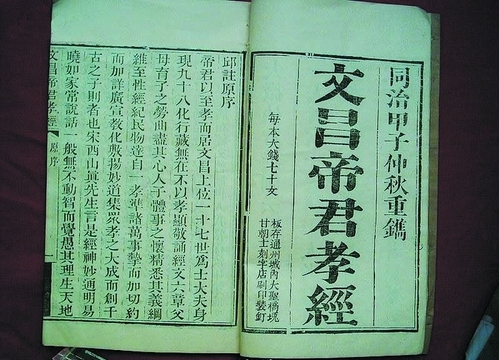 同治甲子仲秋重鐫
文昌帝君孝經
每本大錢七十文
板存通州城內大聖橋境
甘朝士刻字店刷印裝訂
邱註原序
帝君以至孝而居文昌上位一十七世為士大夫身
現九十八化行藏無在不以孝顯敬誦經文六章父
母育子之勞曲盡其心人子體事之懷精悉其義綱
維至性經紀民物達自一孝準諸萬事摯而加切約
而加詳廣宣教化敷揚妙道集眾孝之大成而創千
古之子則者也宋西山真先生言是經神妙通明易
曉如家常說話一般無不動智而覺愚其理生天地
文昌帝君孝經 原序 一